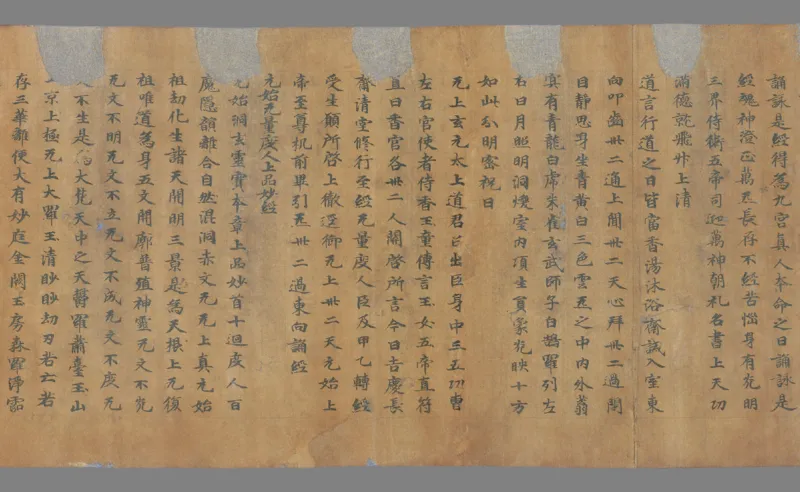 誦詠是經得為九宮真人本命之日誦詠是
經魂神澄正萬炁長存不經苦惱身有光明
三界侍衛五帝司迎萬神朝礼名書上天功
滿德就飛升上清
道言行道之日皆當香湯沐浴齋誡入室東
向叩齒卅二通上聞卅二天心拜卅二過閇
目靜思身坐青黃白三色雲炁之中內外蓊
冥有青龍白虎朱雀玄武師子白鶴羅列左
右日月照明洞煥室內項生員象光映十方
如此分明密祝曰
无上玄元太上道君召出臣身中三五功曹
左右官使者侍香玉童傳言玉女五帝直符
直日香官各卅二人關啓所言今日吉慶長
齋清堂修行至經无量度人臣及甲乙轉經
受生願所啓上徹逕御无上卅二天元始上
帝至尊机前畢引炁卅二過東向誦經
元始无量度人上品妙經
元始洞玄靈寶本章上品妙首十迴度人百
魔隱韻離合自然混洞赤文无无上真元始
祖劫化生諸天開明三景是為天根上无復
祖唯道為身五文開廓普殖神靈无文不光
无文不明无文不立无文不成无文不度无
不生是為大梵天中之天欝羅蕭臺玉山
京上極无上大羅玉清眇眇劫刃若亡若
存三華離便大有妙庭金闕玉房森羅淨